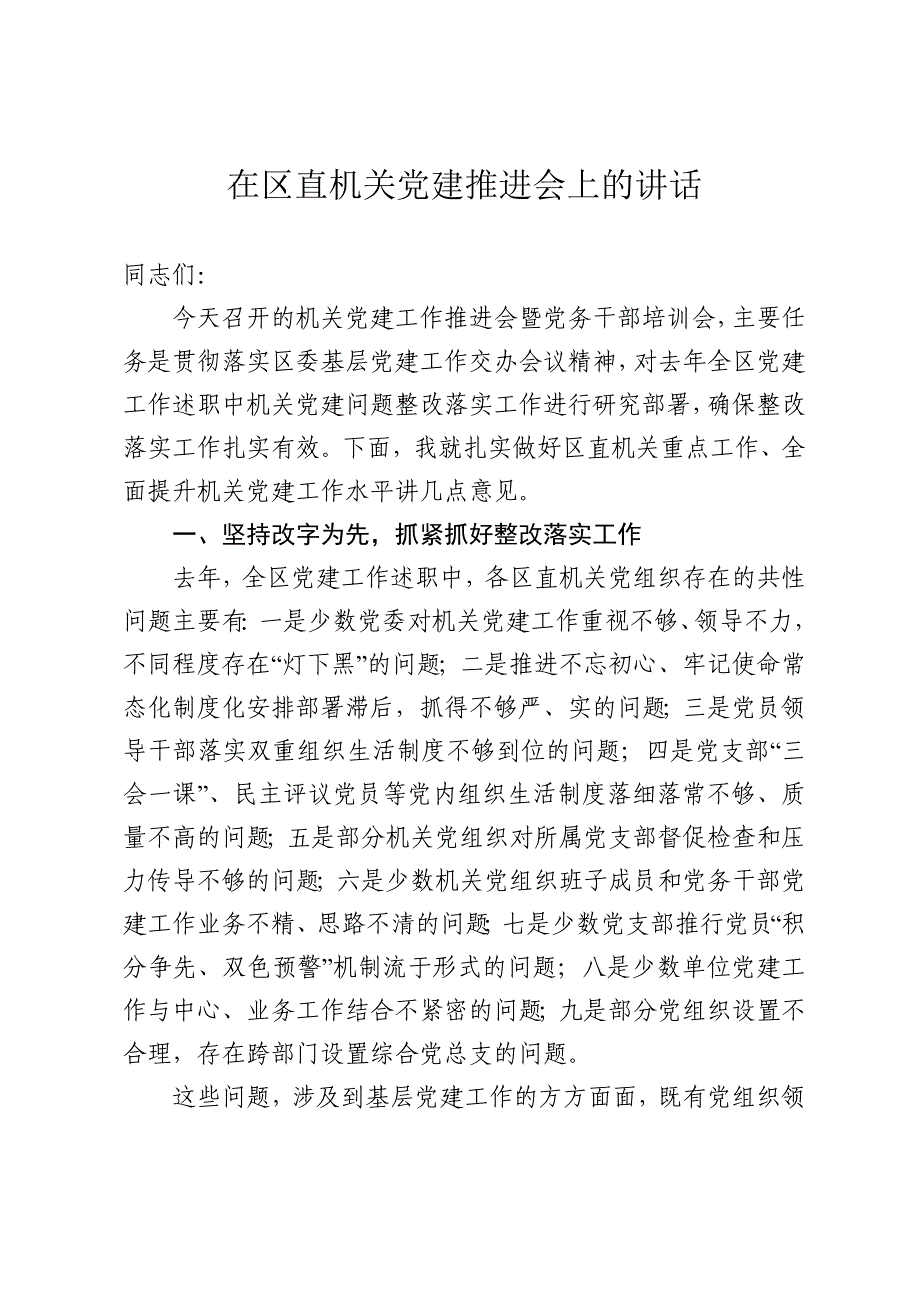 在区直机关党建推进会上的讲话
同志们：
今天召开的机关党建工作推进会暨党务干部培训会，主要任
务是贯彻落实区委基层党建工作交办会议精神，对去年全区党建
工作述职中机关党建问题整改落实工作进行研究部署，确保整改
落实工作扎实有效。下面，我就扎实做好区直机关重点工作、全
面提升机关党建工作水平讲几点意见。
一、坚持改字为先，抓紧抓好整改落实工作
去年，全区党建工作述职中，各区直机关党组织存在的共性
问题主要有：一是少数党委对机关党建工作重视不够、领导不力，
不同程度存在“灯下黑”的问题；二是推进不忘初心、牢记使命常
态化制度化安排部署滞后，抓得不够严、实的问题；三是党员领
导干部落实双重组织生活制度不够到位的问题；四是党支部“三
会一课”、民主评议党员等党内组织生活制度落细落常不够、质
量不高的问题；五是部分机关党组织对所属党支部督促检查和压
力传导不够的问题；六是少数机关党组织班子成员和党务干部党
建工作业务不精、思路不清的问题；七是少数党支部推行党员“积
分争先、双色预警”机制流于形式的问题；八是少数单位党建工
作与中心、业务工作结合不紧密的问题；九是部分党组织设置不
合理，存在跨部门设置综合党总支的问题。
这些问题，涉及到基层党建工作的方方面面，既有党组织领